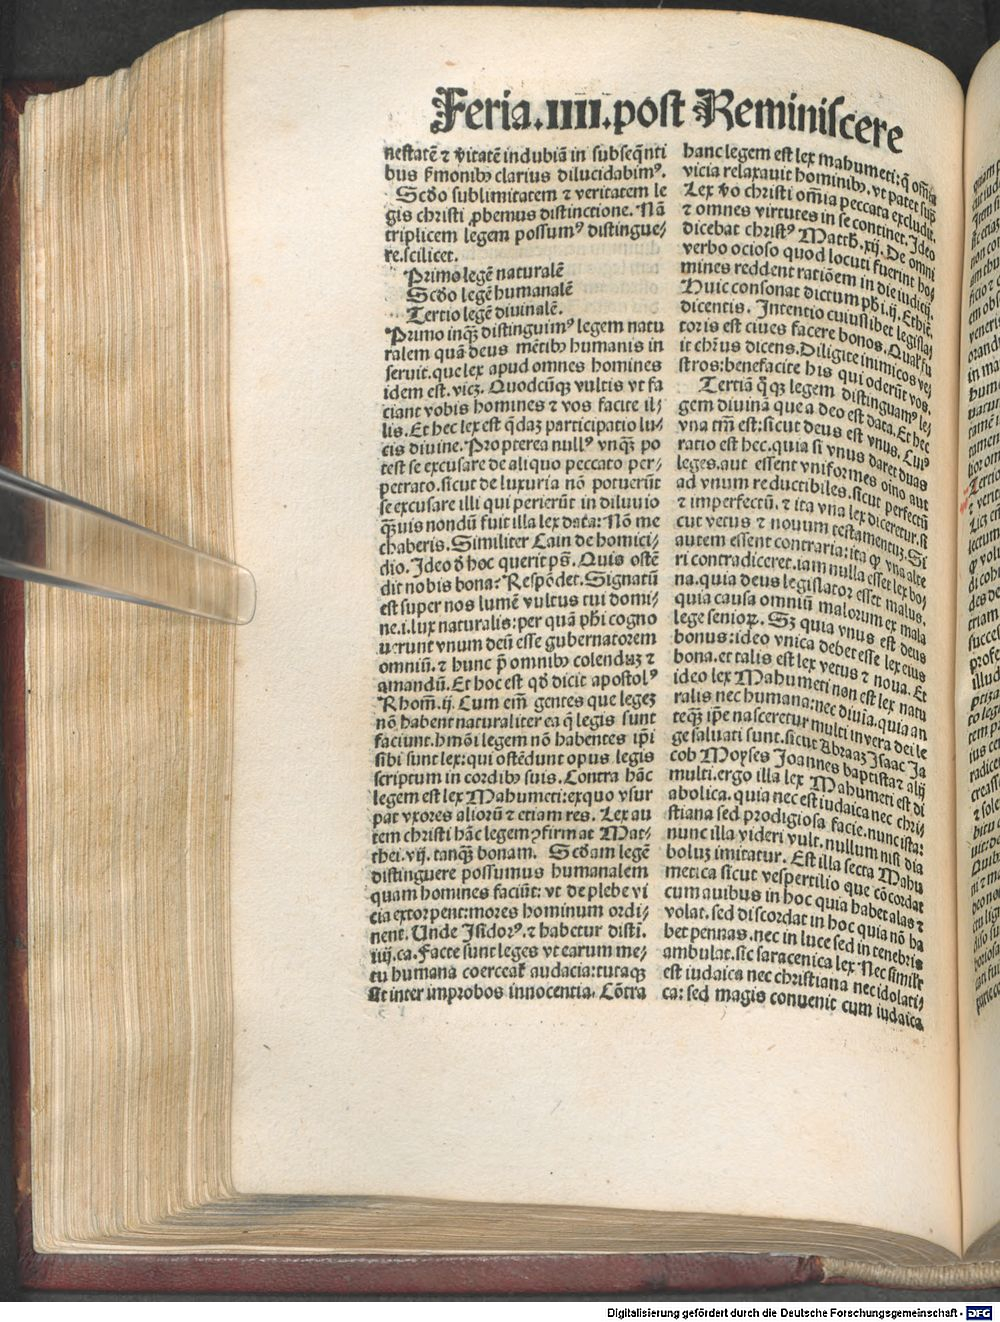 Feria.IIII.post Reminiscere
nestatē ⁊ v̄itatē indubiā in subseq̄nti
bus ẜmonibꝰ clarius dilucidabimꝰ.
Scdo sublimitatem ⁊ veritatem le
gis christi ꝓbemus distinctione. Nā
triplicem legem possumꝰ distingue/
re.scilicet.
Primo legē naturalē
Scdo legē humanalē
Tertio legē diuinalē.
Primo inqꝫ distinguimꝰ legem natu
ralem quā deus mētibꝰ humanis in
seruit.que lex apud omnes homines
idem est.vicꝫ. Quodcūqꝫ vultis vt fa
ciant vobis homines ⁊ vos facite il/
lis.Et hec lex est q̄daꝫ participatio lu/
cis diuine. Propterea nullꝰ vnqꝫ po
test se excusare de aliquo peccato per/
petrato.sicut de luxuria nō potuerūt
se excusare illi qui perierūt in diluuio
qꝫuis nondū fuit illa lex data: Nō me
chaberis. Similiter Cain de homici/
dio. Ideo d̄ hoc querit pṡ. Quis ostē
dit nobis bona? Respōdet. Signatū
est super nos lumē vultus tui domi/
ne.i.lux naturalis:per quā phi cogno
uerunt vnum deū esse gubernatorem
omniū.⁊ hunc p̄ omnibꝰ colendaꝫ ⁊
amandū. Et hoc est qd̄ dicit apostolꝰ
Rhom.ij. Cum eīm gentes que legeꝫ
nō habent naturaliter ea q̄ legis sunt
faciunt.hmōi legem nō habentes ip̄i
sibi sunt lex: qui ostēdunt opus legis
scriptum in cordibꝰ suis. Contra hāc
legem est lex Mahumeti:exquo vsur
pat vxores alioruꝫ ⁊ etiam res. Lex au
tem christi hāc legem ꝯfirmat Mat-
thei.vij. tanqꝫ bonam. Scdam legē
distinguere possumus humanalem
quam homines faciūt: vt de plebe vi
cia extorpent:mores hominum ordi/
nent. Unde Isidorꝰ.⁊ habetur disti.
iiij.ca.Facte sunt leges vt earum me/
tu humana coerceat̃ audacia:tutaqꝫ
sit inter improbos innocentia. Cōtra
hanc legem est lex mahumeti:q̄ om̄ia
vicia relaxauit hominibꝰ.vt patet sup̃
Lex v̄o christi om̄ia peccata excludit.
⁊ omnes virtutes in se continet. Ideo
dicebat christꝰ Matth.xij. De omni
verbo ocioso quod locuti fuerint ho/
mines reddent ratiōem in die iudicij.
Huic consonat dictum phi.ij. Ethic̄.
dicentis. Intentio cuiuslibet legisla/
toris est ciues facere bonos. Qual̃ fu
it chr̄us dicens.Diligite inimicos ve/
stros:benefacite his qui oderūt vos.
Tertiā q̄qꝫ legem distinguamꝰ le/
gem diuinā que a deo est data. Et hec
vna tm̄ est:sicut deus est vnus. Cuiꝰ
ratio est hec.quia si vnus daret duas
leges.aut essent vniformes oīno aut
ad vnum reductibiles.sicut perfectū
⁊ imperfectū.⁊ ita vna lex diceretur.si
cut vetus ⁊ nouum testamentuꝫ. Si
autem essent contraria:ita ꝙ vna alte
ri contradiceret.iam nulla esset lex bo/
na.quia deus legislator esset malus.
quia causa omniū malorum ex mala
lege senioꝝ. Sꝫ quia vnus est deus
bonus:ideo vnica debet esse lex eius
bona.et talis est lex vetus ⁊ noua. Et
ideo lex Mahumeti non est lex natu
ralis nec humana:nec diuīa.quia an
teqꝫ ip̄e nasceretur multi in vera dei le
ge saluati sunt.sicut Abraaꝫ Isaac Ja
cob Moyses Joannes baptista ⁊ alij
multi.ergo illa lex Mahumeti est di
abolica.quia nec est iudaica nec chri/
stiana sed prodigiosa facie.nunc ista:
nunc illa videri vult.nullum nisi dia
boluꝫ imitatur. Est illa secta Mahu
metica sicut vespertilio que cōcordat
cum auibus in hoc quia habet alas ⁊
volat.sed discordat in hoc quia nō ha
bet pennas.nec in luce sed in tenebris
ambulat.sic saracenica lex Nec simil̃r
est iudaica nec christiana nec idolatri/
ca: sed magis conuenit cum iudaica
Digitalisierung gefördert durch die Deutsche Forschungsgemeinschaft - DFG